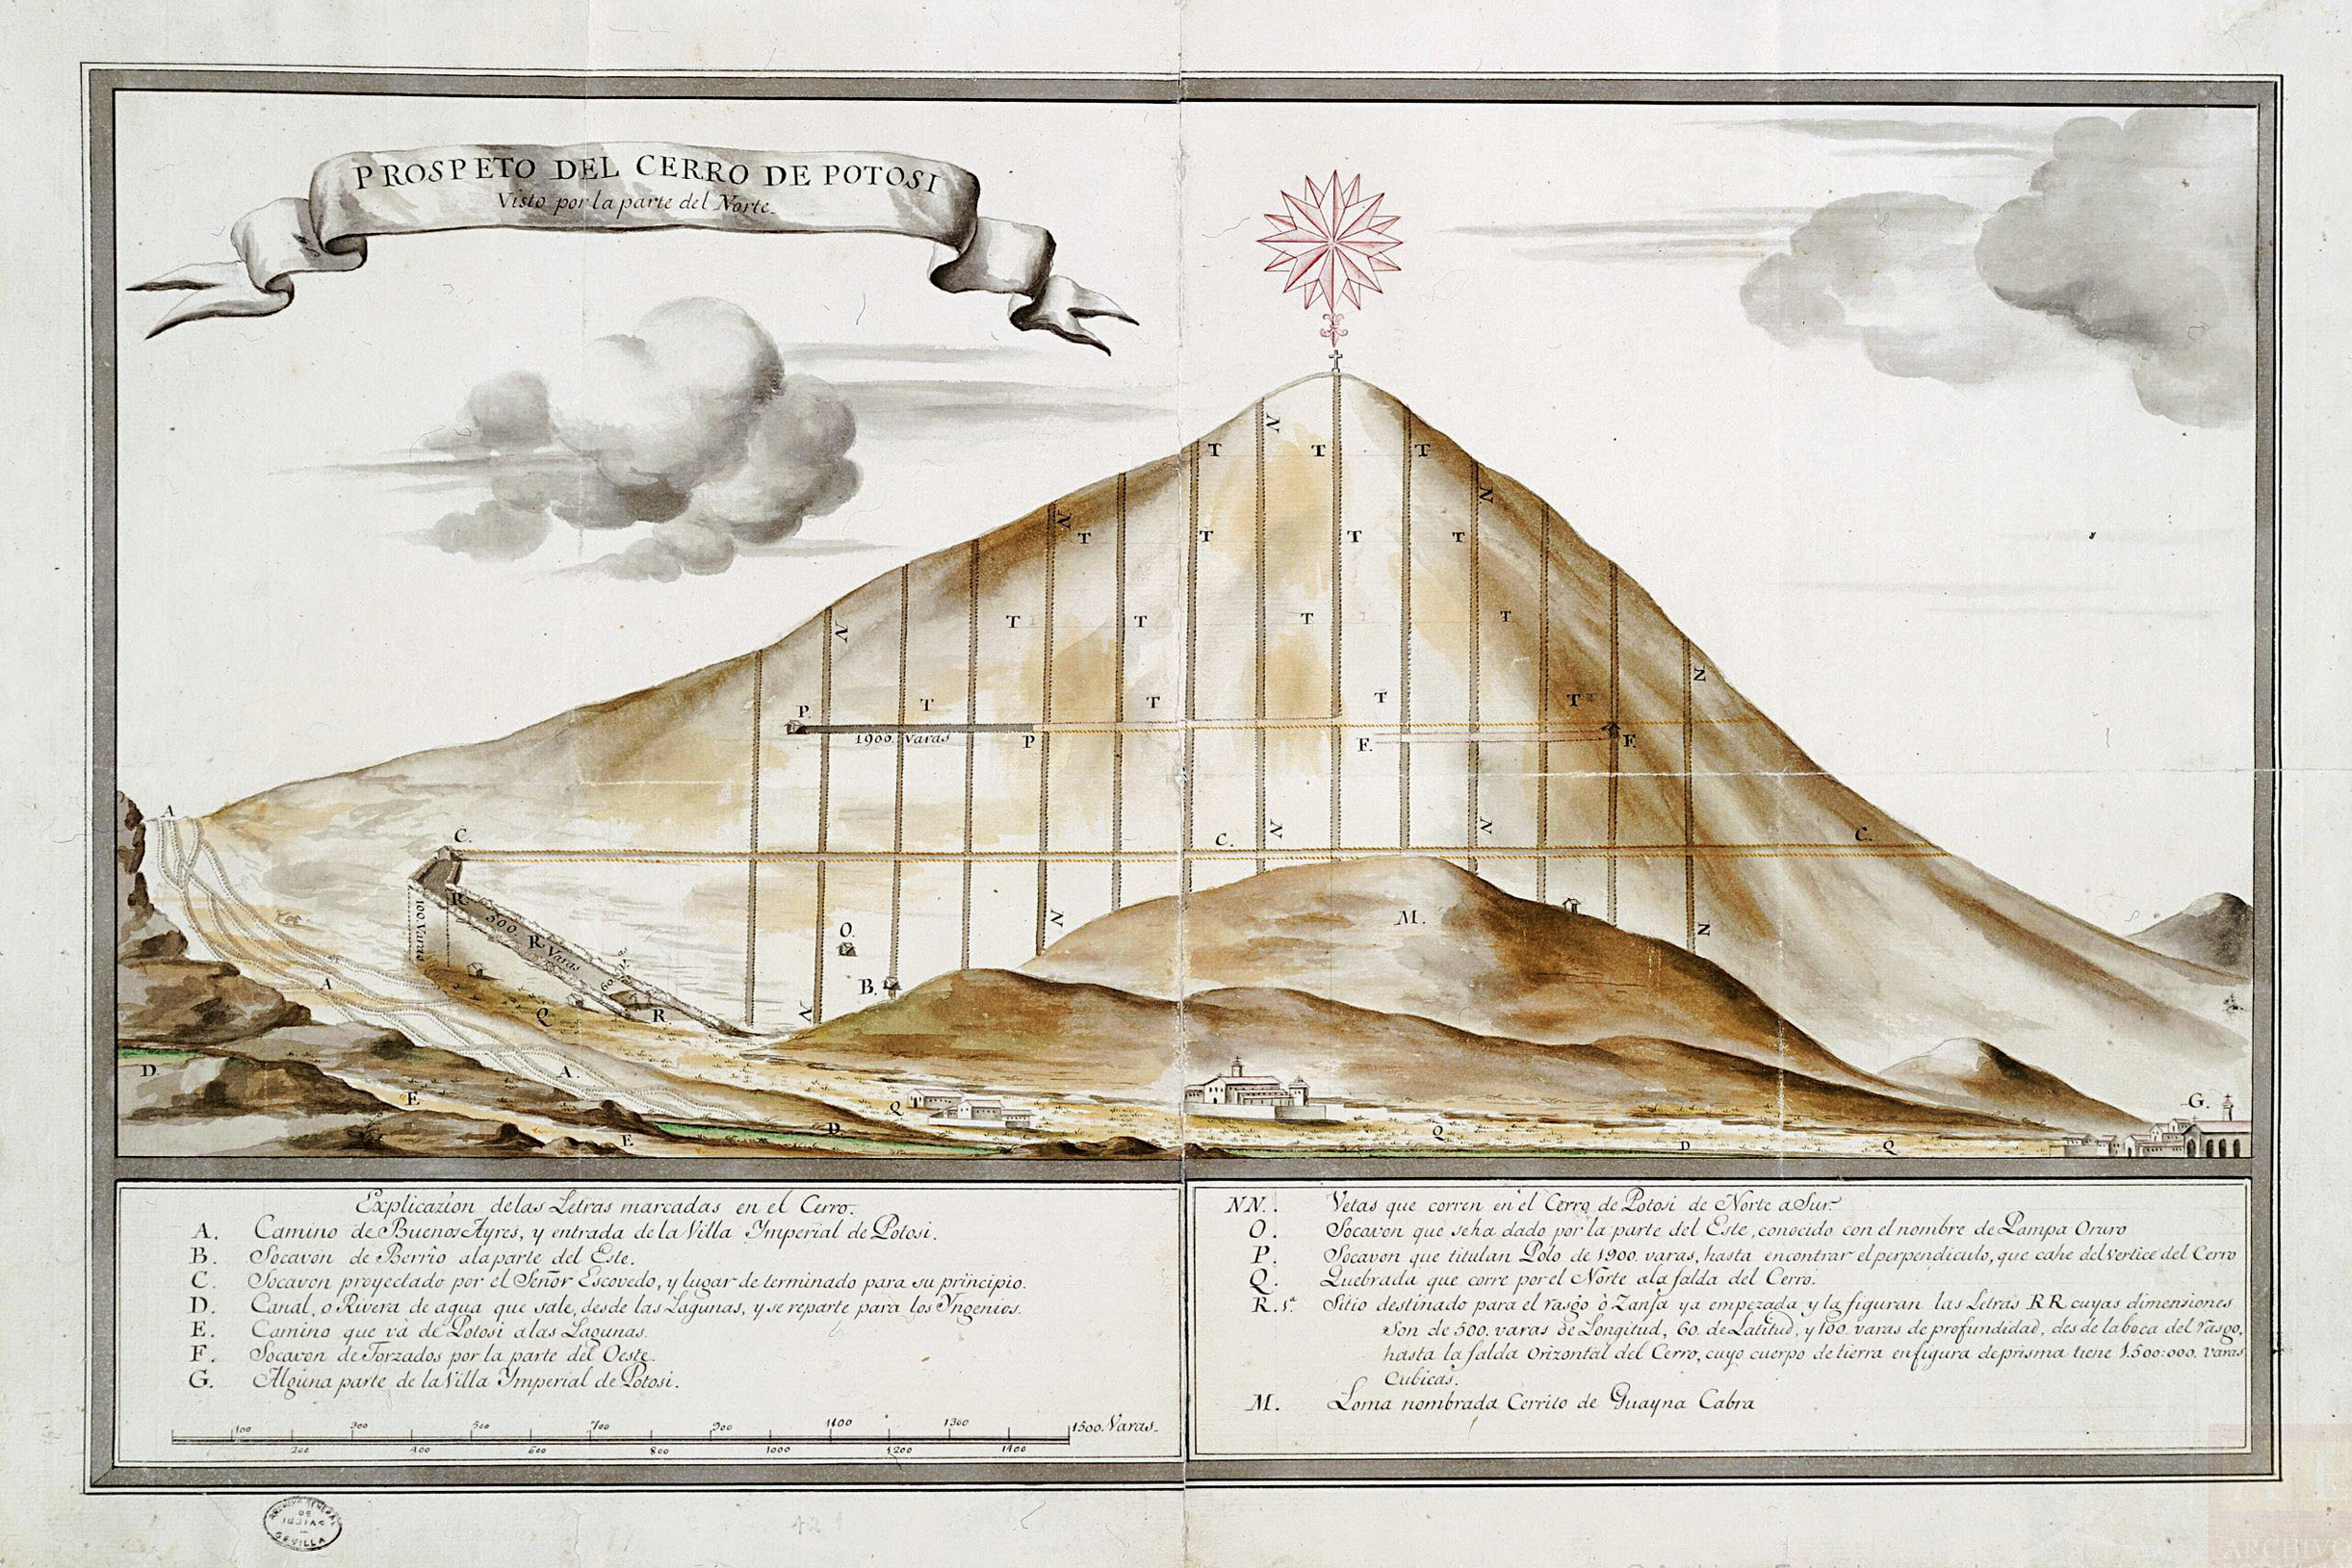 PROSPETO DEL CERRO DE POTOSI
Visto por la parte del Norte.
N
T T T
N
N
T T T T
N
T T T T
N
P. T T T T
1900. Varas P F. F.
A
C. C. N N C.
R.
500. R. Varas
100. Varas
N M. N
O.
60. Varas
B.
A
Q R. N
D A.
E Q G.
E D Q D Q
Explicazion de las Letras marcadas en el Cerro.
A. Camino de Buenos Ayres, y entrada de la Villa Ymperial de Potosi.
B. Socavon de Berrio ala parte del Este.
C. Socavon proyectado por el Señor Escovedo, y lugar determinado para su principio.
D. Canal, o Rivera de agua que sale, desde las Lagunas, y se reparte para los Yngenios.
E. Camino que và de Potosi alas Lagunas.
F. Socavon de Forzados por la parte del Oeste.
G. Alguna parte de la Villa Ymperial de Potosi.
100 300 500 700 900 1100 1300 1500 Varas.
200 400 600 800 1000 1200 1400
NN. Vetas que corren en el Cerro de Potosi de Norte a Sur.
O. Socavon que seha dado por la parte del Este, conocido con el nombre de Pampa Oruro
P. Socavon que titulan Polo de 1900. varas, hasta encontrar el perpendiculo, que cahe del vertice del Cerro
Q. Quebrada que corre por el Norte ala falda del Cerro.
R.s.ª Sitio destinado para el rasgo ò Zanja ya empezada y la figuran las Letras RR cuyas dimensiones
son de 500. varas de Longitud, 60. de Latitud, y 100 varas de profundidad, desde la boca del rasgo,
hasta la falda Orizontal del Cerro, cuyo cuerpo de tierra en figura de prisma tiene 1.500:000. varas
Cubicas.
M. Loma nombrada Cerrito de Guayna Cabra
ARCHIVO GENERAL
DE
INDIAS
SEVILLA
ARCHIVO